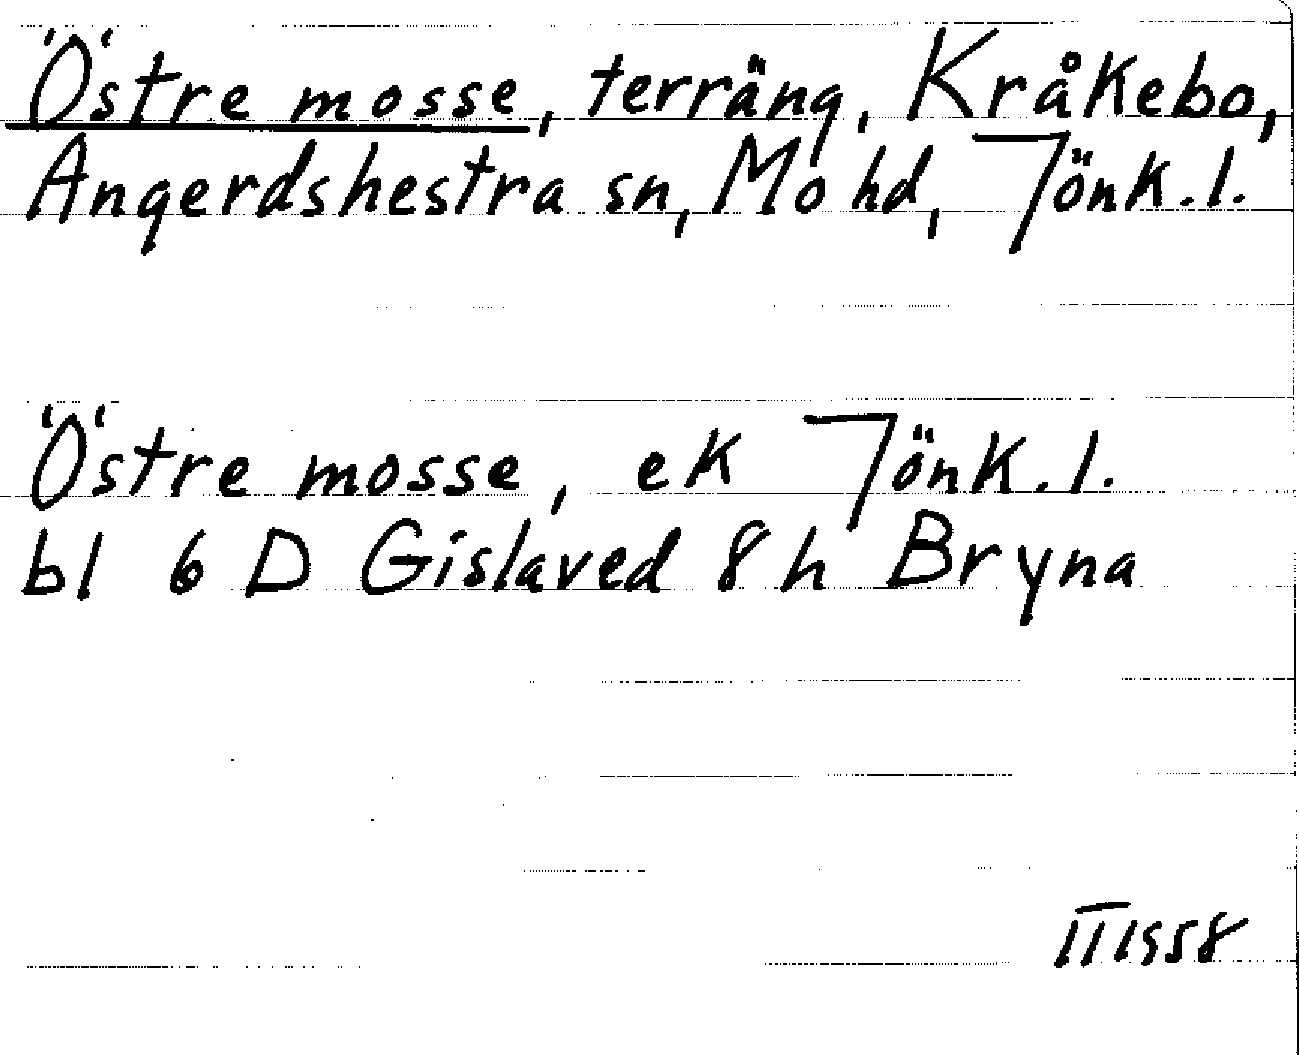 Östre mosse, terräng, Kråkebo,
Angerdshestra sn, Mo hd, Jönk.l.
Östre mosse, ek Jönk.l.
bl 6 D Gislaved 8 h Bryna
II 1958